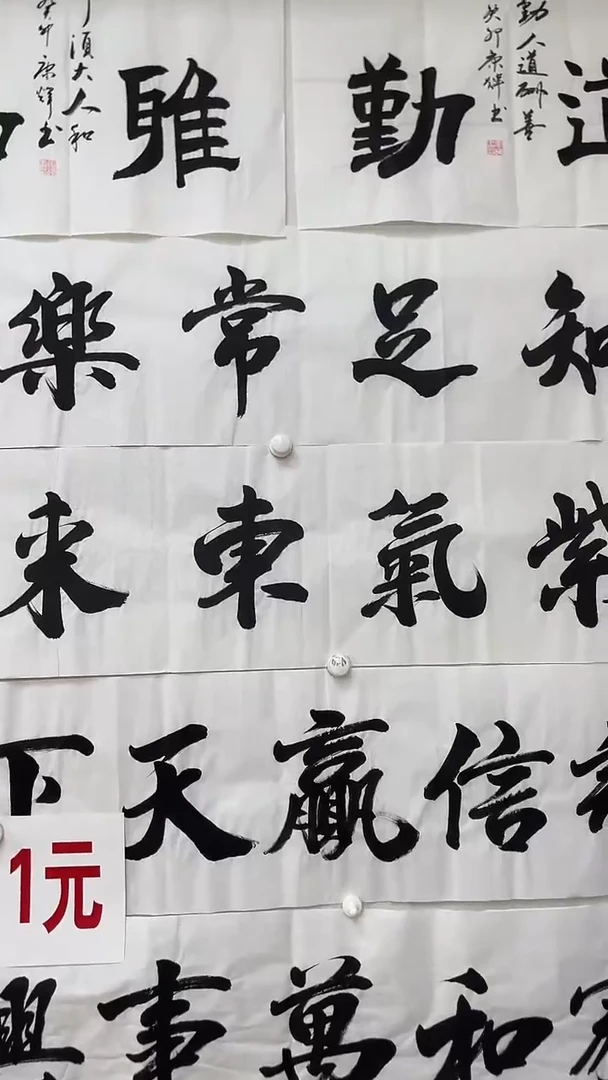 勤
勤人道酬善
癸卯康輝书
雅
須大人和
癸卯康輝书
知足常樂
紫氣東來
信贏天下
家和萬事興
1元